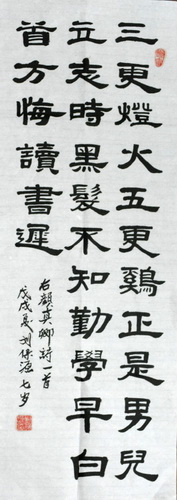 三更燈火五更鷄正是男兒
立志時黑髮不知勤學早白
首方悔讀書遲
右顏真卿詩一首
戊戌夏刘保源七岁